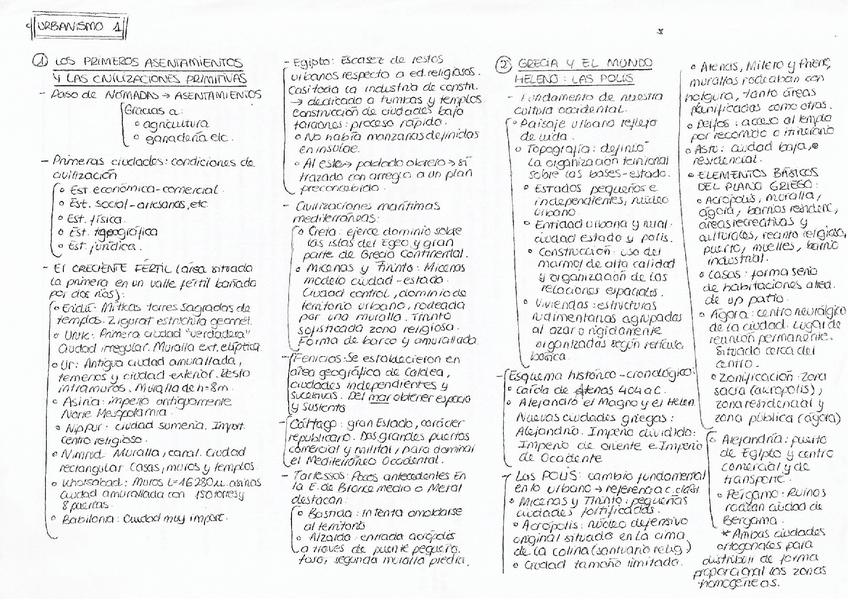 URBANISMO 1
① LOS PRIMEROS ASENTAMIENTOS
Y LAS CIVILIZACIONES PRIMITIVAS
- Paso de NÓMADAS → ASENTAMIENTOS
Gracias a:
o agricultura
o ganadería etc.
- Primeras ciudades: condiciones de
civilización
o Est. económica-comercial.
o Est. social-artesanos, etc
o Est. física.
o Est. topográfica
o Est. jurídica.
- El CRECIENTE FÉRTIL (área situada
la primera en un valle fértil bañado
por dos ríos):
o Eridú: Míticas torres sagradas de
templos. Zigurat estructura geomét.
o Uruk: Primera ciudad "verdadera"
Ciudad irregular. Muralla ext. elíptica.
o Ur: Antigua ciudad amurallada,
temenos y ciudad exterior. Resto
intramuros. Muralla de h=8m.
o Asiria: imperio antiguamente
Norte Mesopotamia.
o Nippur: ciudad sumeria. Import.
centro religioso.
o Nimrud: Muralla, canal. Ciudad
rectangular. Casas, muros y templos.
o Khorsabad: Muros L=46280u. asirias
ciudad amurallada con 150 torres y
8 puertas.
o Babilonia: Ciudad muy import.
- Egipto: Escasez de restos
urbanos respecto a ed. religiosos.
Casi toda la industria de constr.
→ dedicado a tumbas y templos
Construcción de ciudades bajo
faraones: proceso rápido.
o No había manzanas definidas
en insulae.
o Al este → poblado obrero → sí
trazado con arreglo a un plan
preconcebido.
- Civilizaciones marítimas
mediterráneas:
o Creta: ejerce dominio sobre
las islas del Egeo y gran
parte de Grecia Continental.
o Micenas y Tirinto: Micenas
modelo ciudad-estado.
Ciudad control, dominio de
territorio urbano, rodeada
por una muralla. Tirinto
sofisticada zona religiosa.
Forma de barco y amurallado
- Fenicios: Se establecieron en
área geográfica de Caldea,
ciudades independientes y
sucesivas. Del mar obtener espacio
y sustento
- Cártago: gran Estado, carácter
republicano. Dos grandes puertos
comercial y militar, para dominar
el Mediterráneo Occidental.
- Tartessos: Pocos antecedentes en
la E. de Bronce medio o Metal
destacan:
o Bastida: Intenta amoldarse
al territorio
o Alzaida: entrada acrópolis
a través de puente pequeño.
foso, segunda muralla piedra.
② GRECIA Y EL MUNDO
HELENO: LAS POLIS
- Fundamento de nuestra
cultura occidental.
o Paisaje urbano reflejo
de vida.
o Topografía: definió
la organización territorial
sobre las bases-estado.
o Estados pequeños e
independientes, núcleo
urbano
o Entidad urbana y rural.
ciudad estado y polis.
o Construcción: uso del
mármol de alta calidad
y organización de las
relaciones espaciales.
o Viviendas: estructuras
rudimentarias agrupadas
al azar o rígidamente
organizadas según retícula
básica.
- Esquema histórico-cronológico:
o caída de Atenas 404 a.C.
o Alejandro el Magno y el Helen.
Nuevas ciudades griegas:
Alejandría. Imperio dividido:
Imperio de oriente e Imperio
de Occidente
- Las POLIS: cambio fundamental
en lo urbano → referencia c. clásica
o Micenas y Tirinto: pequeñas
ciudades fortificadas.
o Acrópolis: núcleo defensivo
original situado en la cima
de la colina (santuario relig.)
o Ciudad tamaño limitado.
o Atenas, Mileto y Priene,
murallas rodeaban con
holgura, tanto áreas
planificadas como otras.
o Delfos: acceso al templo
por recorrido o itinerario
o Astu: ciudad baja, o
residencial.
o ELEMENTOS BÁSICOS
DEL PLANO GRIEGO:
o Acrópolis, muralla,
ágora, barrios residenc,
áreas recreativas y
culturales, recinto religioso,
puerto, muelles, barrio
industrial.
o Casas: forma serie
de habitaciones alred.
de un patio.
o Ágora: centro neurálgico
de la ciudad. Lugar de
reunión permanente.
Situado cerca del
centro.
o Zonificación: zona
sacra (acrópolis),
zona residencial y
zona pública (ágora)
o Alejandría: puerto
de Egipto y centro
comercial y de
transporte.
o Pérgamo: Ruinas
rodean ciudad de
Bergama.
* Ambas ciudades
ortogonales para
distribuir de forma
proporcional las zonas
homogéneas.